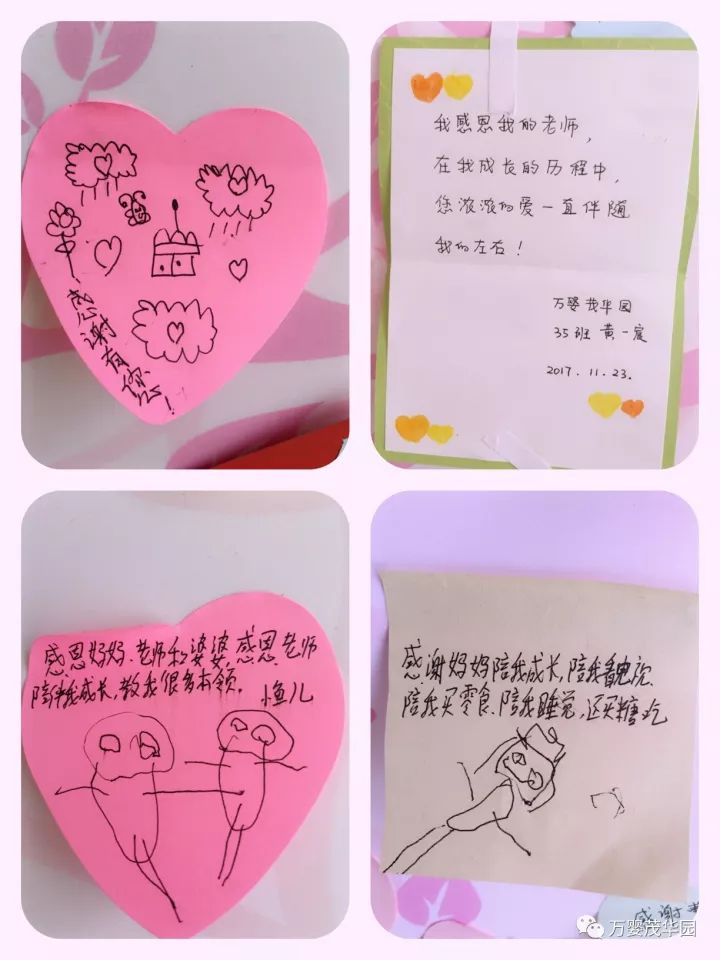 感谢有您！
我感恩我的老师，
在我成长的历程中，
您浓浓的爱一直伴随
我的左右！
万婴茂华园
35班 黄一宸
2017.11.23.
感恩妈妈、老师和婆婆，感恩老师
陪伴我成长，教我很多本领。 小鱼儿
感谢妈妈陪我成长，陪我看电视
陪我买零食、陪我睡觉，还买糖吃
感谢
万婴茂华园